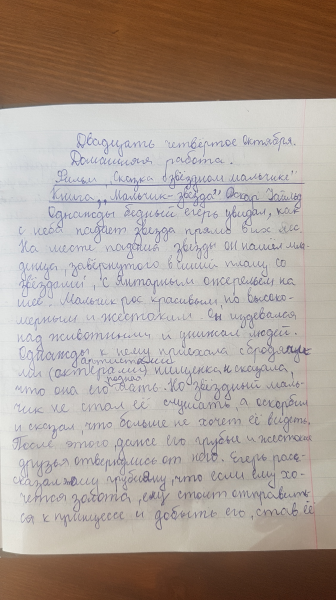 Двадцать четвёртое октября.
Домашняя работа.
Фильм „Сказка о звёздном мальчике"
Книга „Мальчик-звезда" Оскар Уайльд
Однажды бедный егерь увидал, как
с неба падает звезда прямо в их лес.
На месте падения звезды он нашёл мла-
денца, завёрнутого в синий плащ со
звёздами, с янтарным ожерельем на
шее. Мальчик рос красивым, но высоко-
мерным и жестоким. Он издевался
над животными и унижал людей.
Однажды к нему приехала с бродячи
ми (актёрами) артистами нищенка, и сказала,
что она его родная мать. Но звёздный маль-
чик не стал её слушать, а оскорбил
и сказал, что больше не хочет её видеть.
После этого даже его грубые и жестокие
друзья отвернулись от него. Егерь расс-
казал ему грубияну, что если ему хо-
чется золота, ему стоит отправить-
ся к принцессе и добыть его, став её